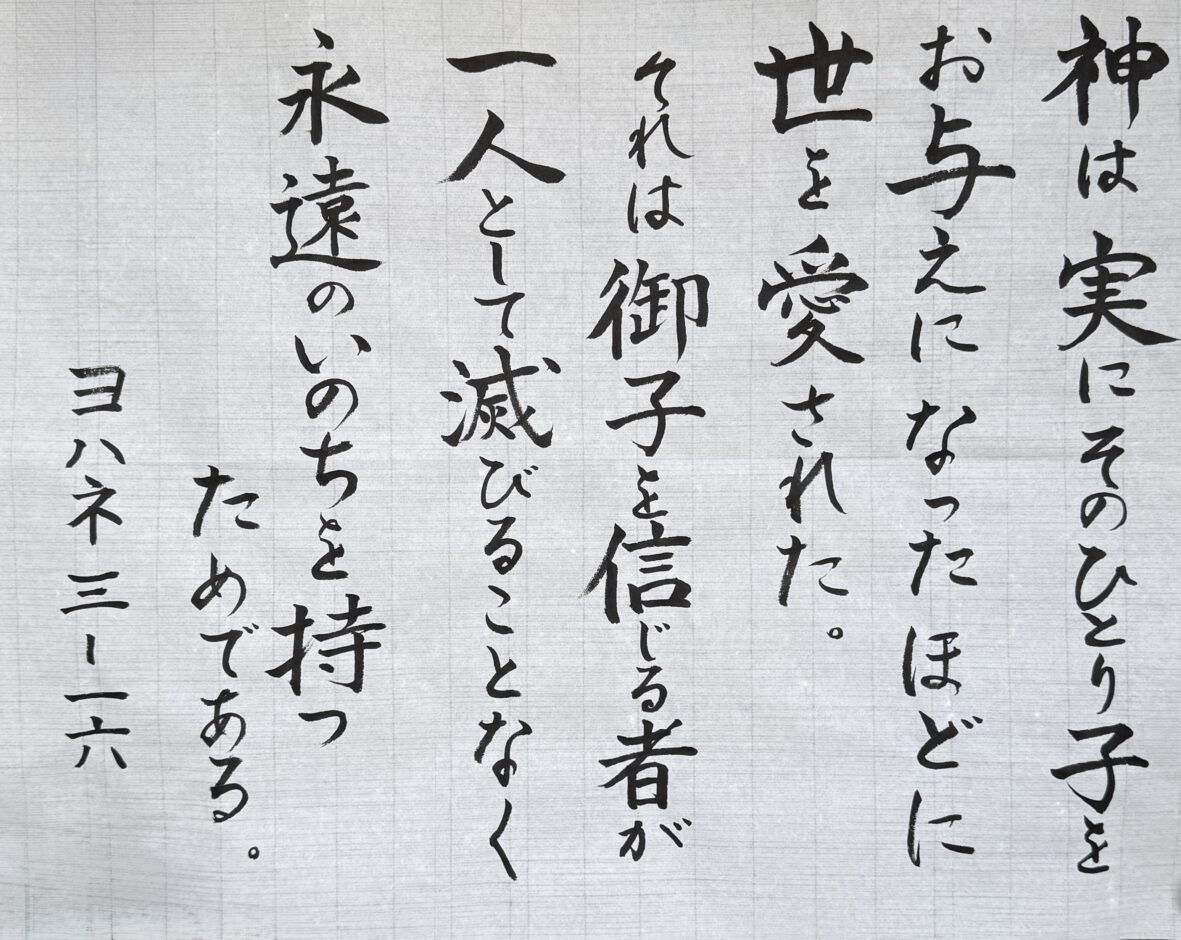 神は実にそのひとり子を
お与えになったほどに
世を愛された。
それは御子を信じる者が
一人として滅びることなく
永遠のいのちを持つ
ためである。
ヨハネ三ー一六